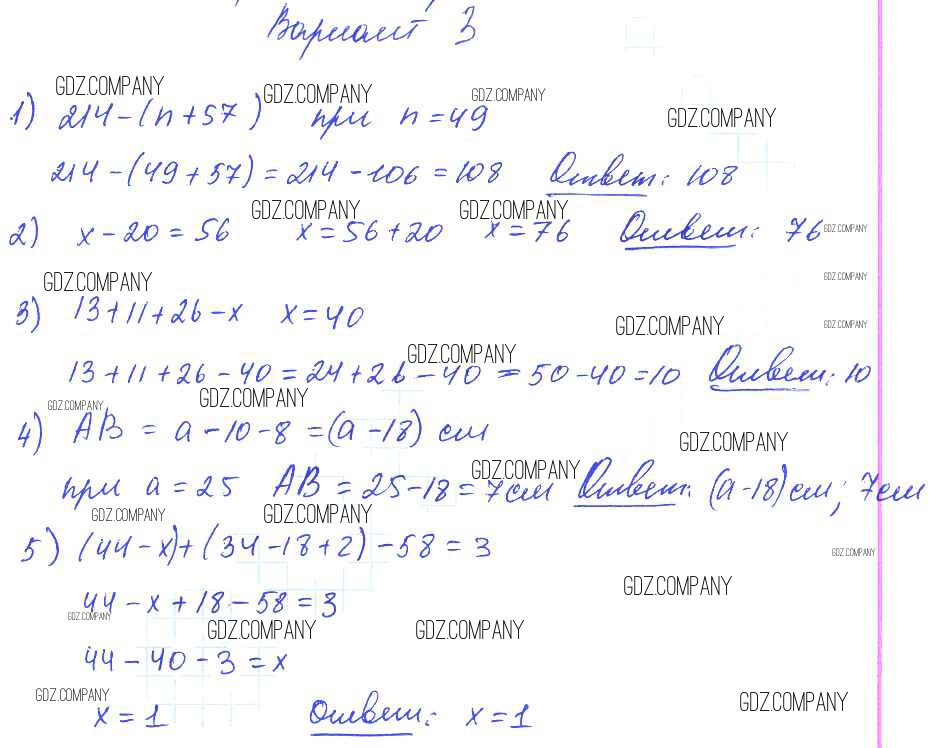 Вариант 3
GDZ.COMPANY GDZ.COMPANY GDZ.COMPANY GDZ.COMPANY
1) 214-(n+57) при n=49
214-(49+57)=214-106=108 Ответ: 108
GDZ.COMPANY GDZ.COMPANY
2) x-20=56 x=56+20 x=76 Ответ: 76 GDZ.COMPANY
GDZ.COMPANY GDZ.COMPANY
3) 13+11+26-x x=40
GDZ.COMPANY GDZ.COMPANY
GDZ.COMPANY
13+11+26-40=24+26-40=50-40=10 Ответ: 10
GDZ.COMPANY GDZ.COMPANY
4) AB = a-10-8=(a-18) см
GDZ.COMPANY GDZ.COMPANY
при a=25 AB=25-18=7см Ответ: (a-18)см; 7см
GDZ.COMPANY GDZ.COMPANY
5) (44-x)+(34-18+2)-58=3
GDZ.COMPANY
GDZ.COMPANY
44-x+18-58=3
GDZ.COMPANY GDZ.COMPANY GDZ.COMPANY
44-40-3=x
GDZ.COMPANY GDZ.COMPANY
x=1 Ответ: x=1